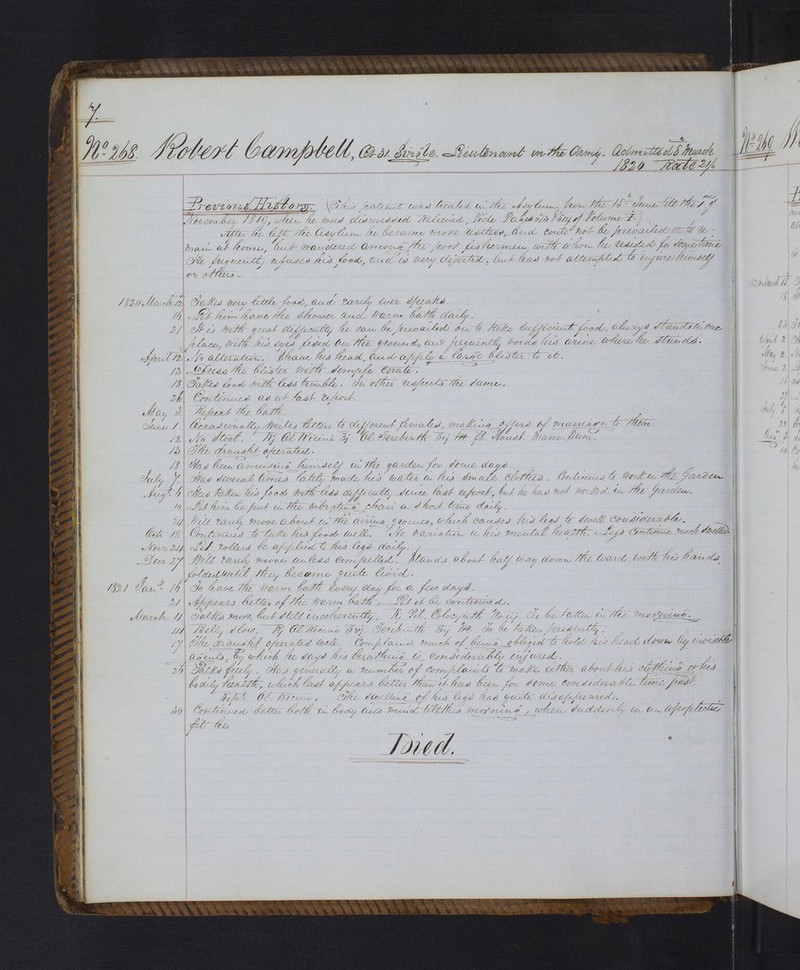 7.
No. 268. Robert Campbell, Æt 31. Single. Lieutenant in the Army. Admitted 8th March
1820 Rate 21/-
Previous History. (This patient was treated in the Asylum from the 15th June till the 7th of
November 1819, when he was dismissed Relieved, Vide Volume 1.)
After he left the Asylum he became more restless, and could not be prevailed on to re-
main at home, but wandered among the poor fishermen, with whom he resided for sometime
He frequently refuses his food, and is very dejected, but has not attempted to injure himself
or others.
1820 March 12 Takes very little food, and rarely ever speaks.
16 Let him have the shower and warm bath daily.
21 It is with great difficulty he can be prevailed on to take sufficient food, always stands in one
place, with his eyes fixed on the ground, and frequently voids his urine where he stands.
April 12 No alteration. Shave his head, and apply a large blister to it.
13 Dress the blister with simple cerate.
18 Takes food with less trouble. In other respects the same.
26 Continues as at last report.
May 3 Repeat the bath.
June 1 Occasionally writes letters to different females, making offers of marriage to them.
12 No stool. ℞ Ol Ricini Ol Terebinth ft. Haust. mane sum.
13 The draught operated.
18 Has been amusing himself in the garden for some days.
July 7 Has several times lately made his water in his small clothes. Continues to work in the Garden
Augt 4 Has taken his food with less difficulty since last report, but he has not worked in the Garden.
10 Let him be put in the vibrating chair a short time daily.
24 Will rarely move about in the airing ground, which causes his legs to swell considerable.
Octr 18 Continues to take his food well. No variation in his mental health. Legs continue much swelled
Novr 24 Let rollers be applied to his legs daily.
Decr 27 Will rarely move unless compelled. Stands about half way down the ward with his hands
folded until they become quite livid.
1821 Jany 16 To have the warm bath every day for a few days.
21 Appears better of the warm bath. Let it be continued.
March 11 Talks more, but still incoherently. ℞ Pil. Colocynth To be taken in the morning.
14 Belly slow. ℞ Ol Ricini Terebinth To be taken presently.
17 The draught operated well. Complains much of being obliged to hold his head down by invisible
agents, by which he says his breathing is considerably injured.
26 Talks freely. Has generally a number of complaints to make either about his clothing or his
bodily health, which last appears better than it has been for some considerable time past
Ol. Ricini. The swelling of his legs has quite disappeared.
30 Continued better both in body and mind till this morning, when suddenly in an apoplectic
fit he
Died.
No. 269